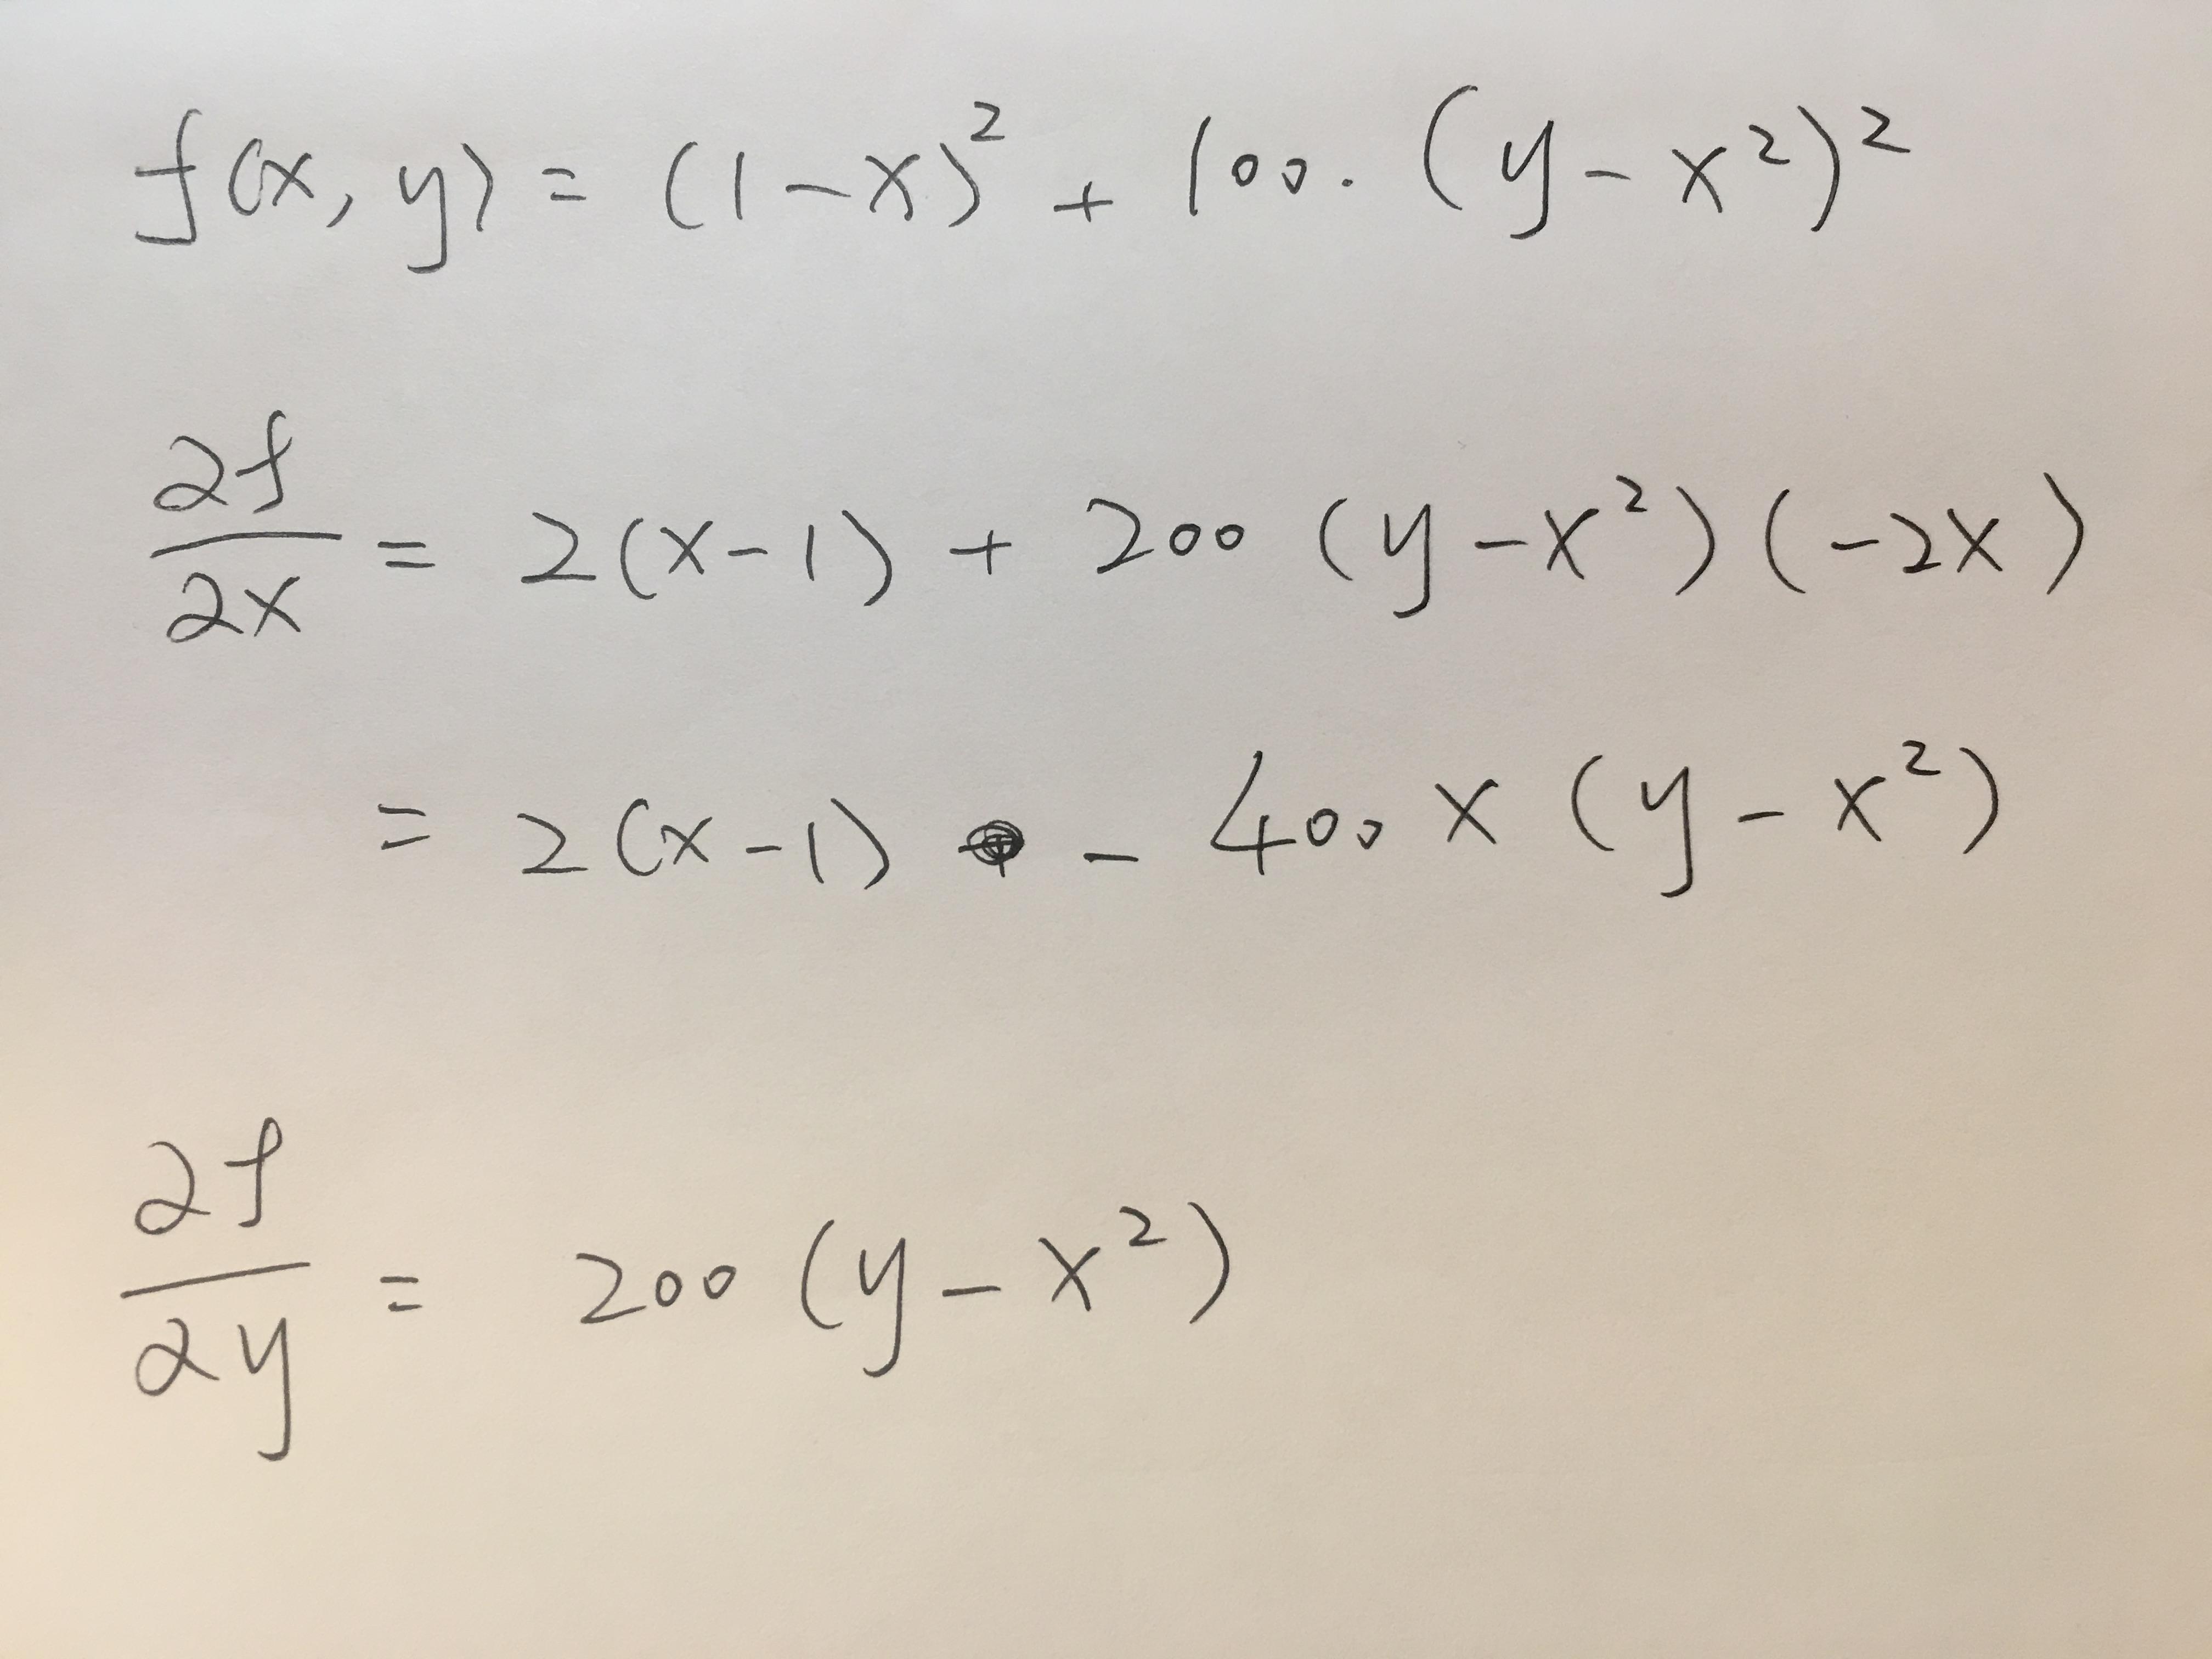 f(x, y) = (1-x)² + 100. (y - x²)²
∂f/∂x = 2(x-1) + 200 (y - x²)(-2x)
= 2(x-1) - 400 x (y - x²)
∂f/∂y = 200 (y - x²)